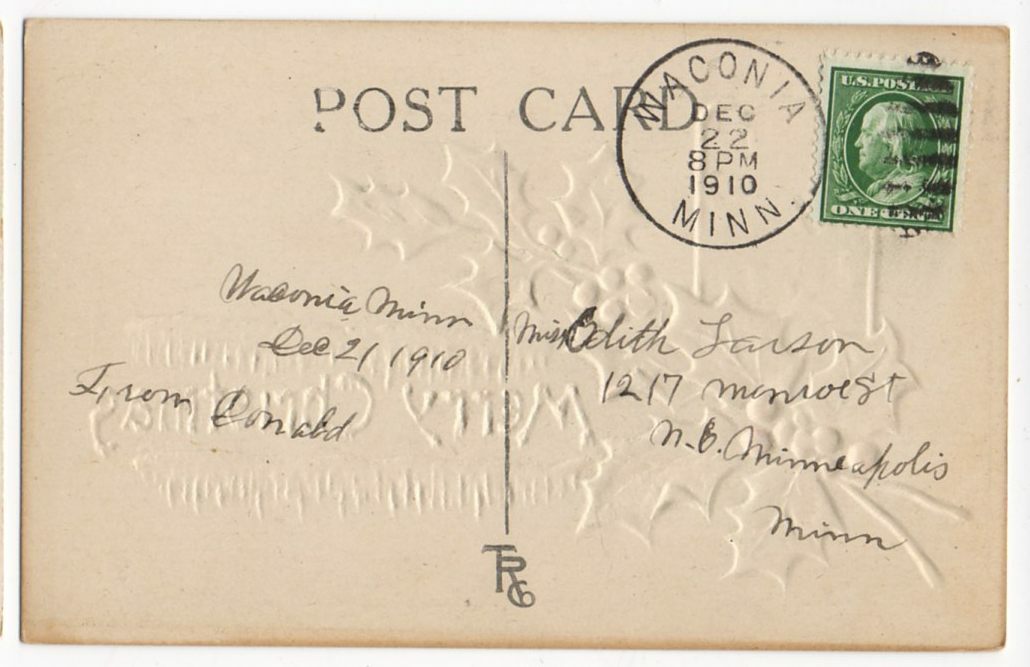 POST CARD
WACONIA
DEC
22
8 PM
1910
MINN.
U.S. POST
ONE CENT
Waconia Minn
Dec 21 1910
From Donald
Miss Edith Larson
1217 Monroe St
N.E. Minneapolis
Minn
Merry Christmas
TRCo